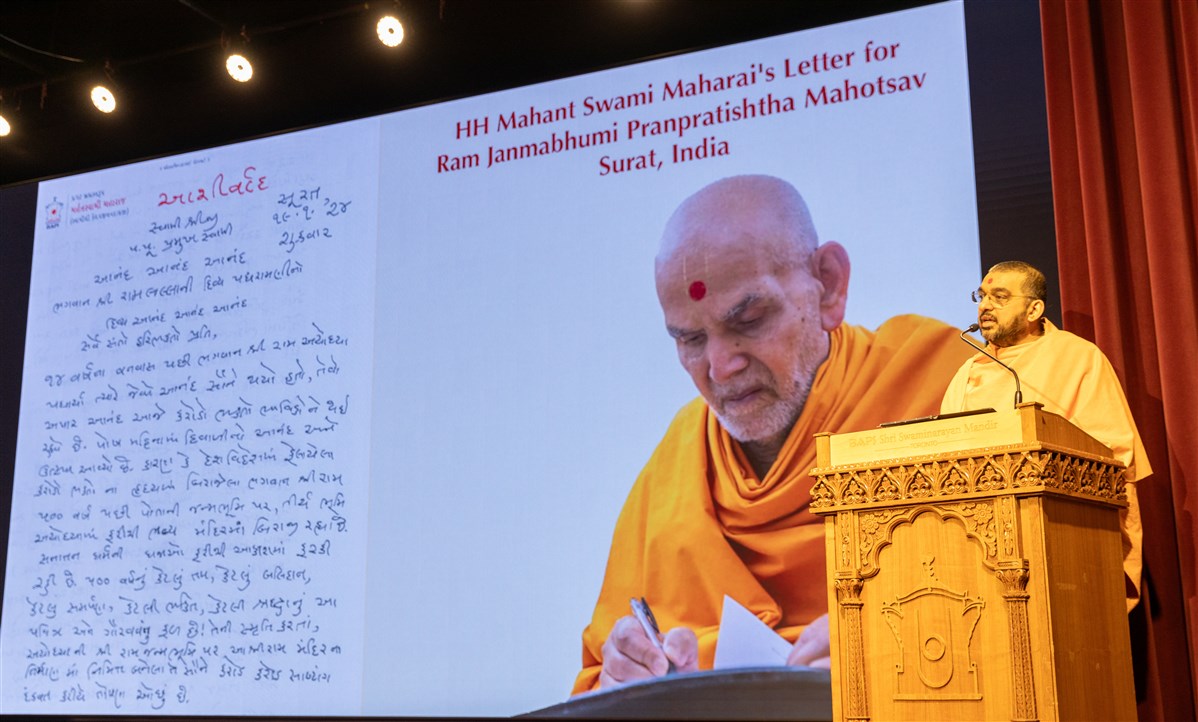 HH Mahant Swami Maharai's Letter for
Ram Janmabhumi Pranpratishtha Mahotsav
Surat, India
આશીર્વાદ
સુરત
૧૯.૧.૨૪
શુક્રવાર
સ્વામી શ્રીજી
પ.પૂ. પ્રમુખ સ્વામી
આનંદ આનંદ આનંદ
ભગવાન શ્રી રામલલ્લાની દિવ્ય પધરામણીનો
દિવ્ય આનંદ આનંદ આનંદ
સર્વે સંતો હરિભક્તો પ્રતિ,
૧૪ વર્ષના વનવાસ પછી ભગવાન શ્રી રામ અયોધ્યા
પધાર્યા ત્યારે જેવો આનંદ સૌને થયો હતો, તેવો
અપાર આનંદ આજે કરોડો ભક્તો ભાવિકોને થઈ
રહ્યો છે. પોષ મહિનામાં દિવાળીનો આનંદ અને
ઉત્સવ આવ્યો છે. કારણ કે દેશવિદેશમાં ફેલાયેલા
કરોડો ભક્તો ના હૃદયમાં બિરાજેલા ભગવાન શ્રી રામ
૫૦૦ વર્ષ પછી પોતાની જન્મભૂમિ પર, તીર્થ ભૂમિ
અયોધ્યામાં ફરીથી ભવ્ય મંદિરમાં બિરાજી રહ્યા છે.
સનાતન ધર્મની ધજાઓ ફરીથી આકાશમાં ફરકી
રહી છે ૫૦૦ વર્ષનું કેટલું તપ, કેટલું બલિદાન,
કેટલું સમર્પણ, કેટલી ભક્તિ, કેટલી શ્રદ્ધાનું આ
પવિત્ર અને ગૌરવવંતુ ફળ છે! તેની સ્મૃતિ કરતાં,
અયોધ્યાની શ્રી રામજન્મભૂમિ પર આ શ્રીરામ મંદિરના
નિર્માણ માં નિમિત્ત બનેલા તે સૌને કરોડ કરોડ સાષ્ટાંગ
દંડવત કરીએ તોપણ ઓછું છે.
BAPS Shri Swaminarayan Mandir